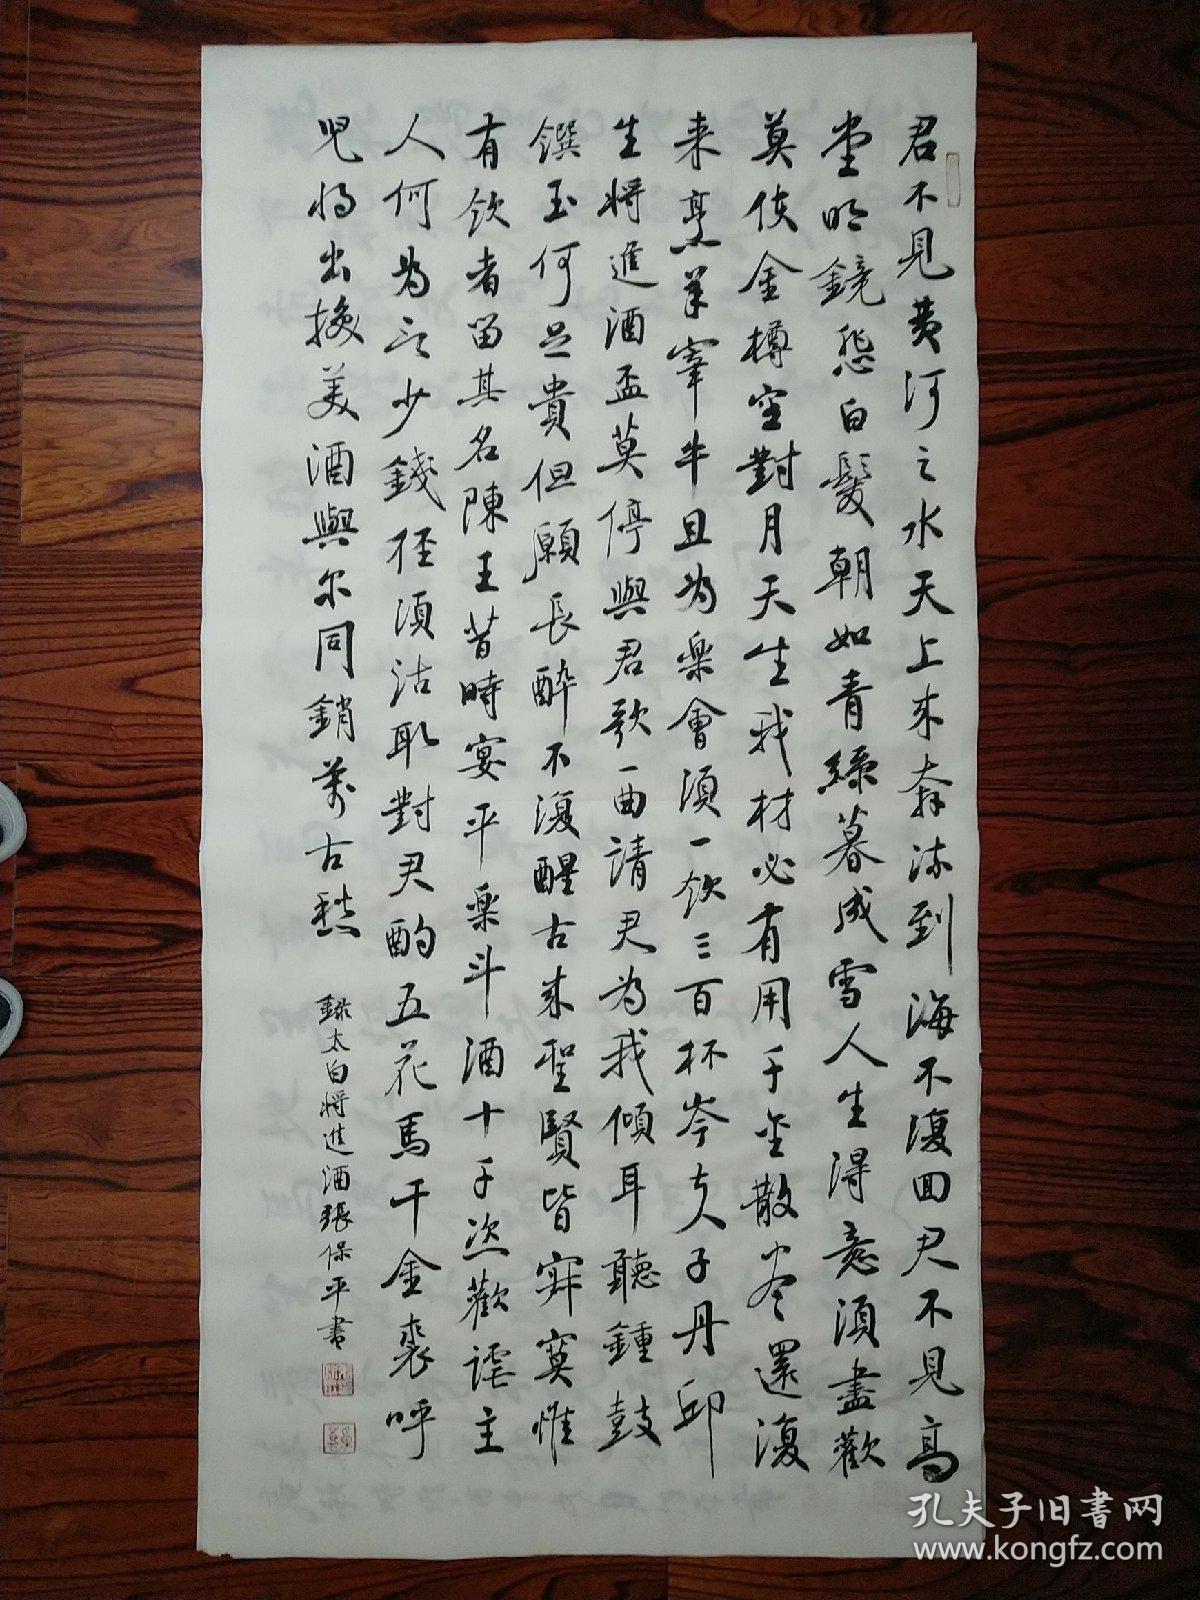 君不見黄河之水天上来奔流到海不復回君不見高
堂明鏡悲白髮朝如青絲暮成雪人生得意須盡歡
莫使金樽空對月天生我材必有用千金散尽還復
来烹羊宰牛且为樂會須一饮三百杯岑夫子丹邱
生将進酒盃莫停與君歌一曲請君为我傾耳聽鍾鼓
饌玉何足貴但願長醉不復醒古来聖賢皆寂寞惟
有饮者留其名陳王昔時宴平樂斗酒十千恣歡謔主
人何为言少錢徑須沽取對君酌五花馬千金裘呼
児将出換美酒與尔同銷萬古愁
錄太白将進酒張保平書
孔夫子旧書网
www.kongfz.com